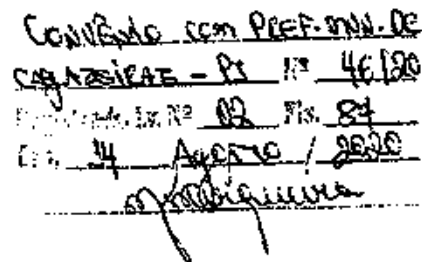 CONVÊNIO COM PREF. MUN. DE
CAJAZEIRAS - PB Nº 46/20
Lv. Nº 02 Fls. 87
Em, 14 Agosto / 2020